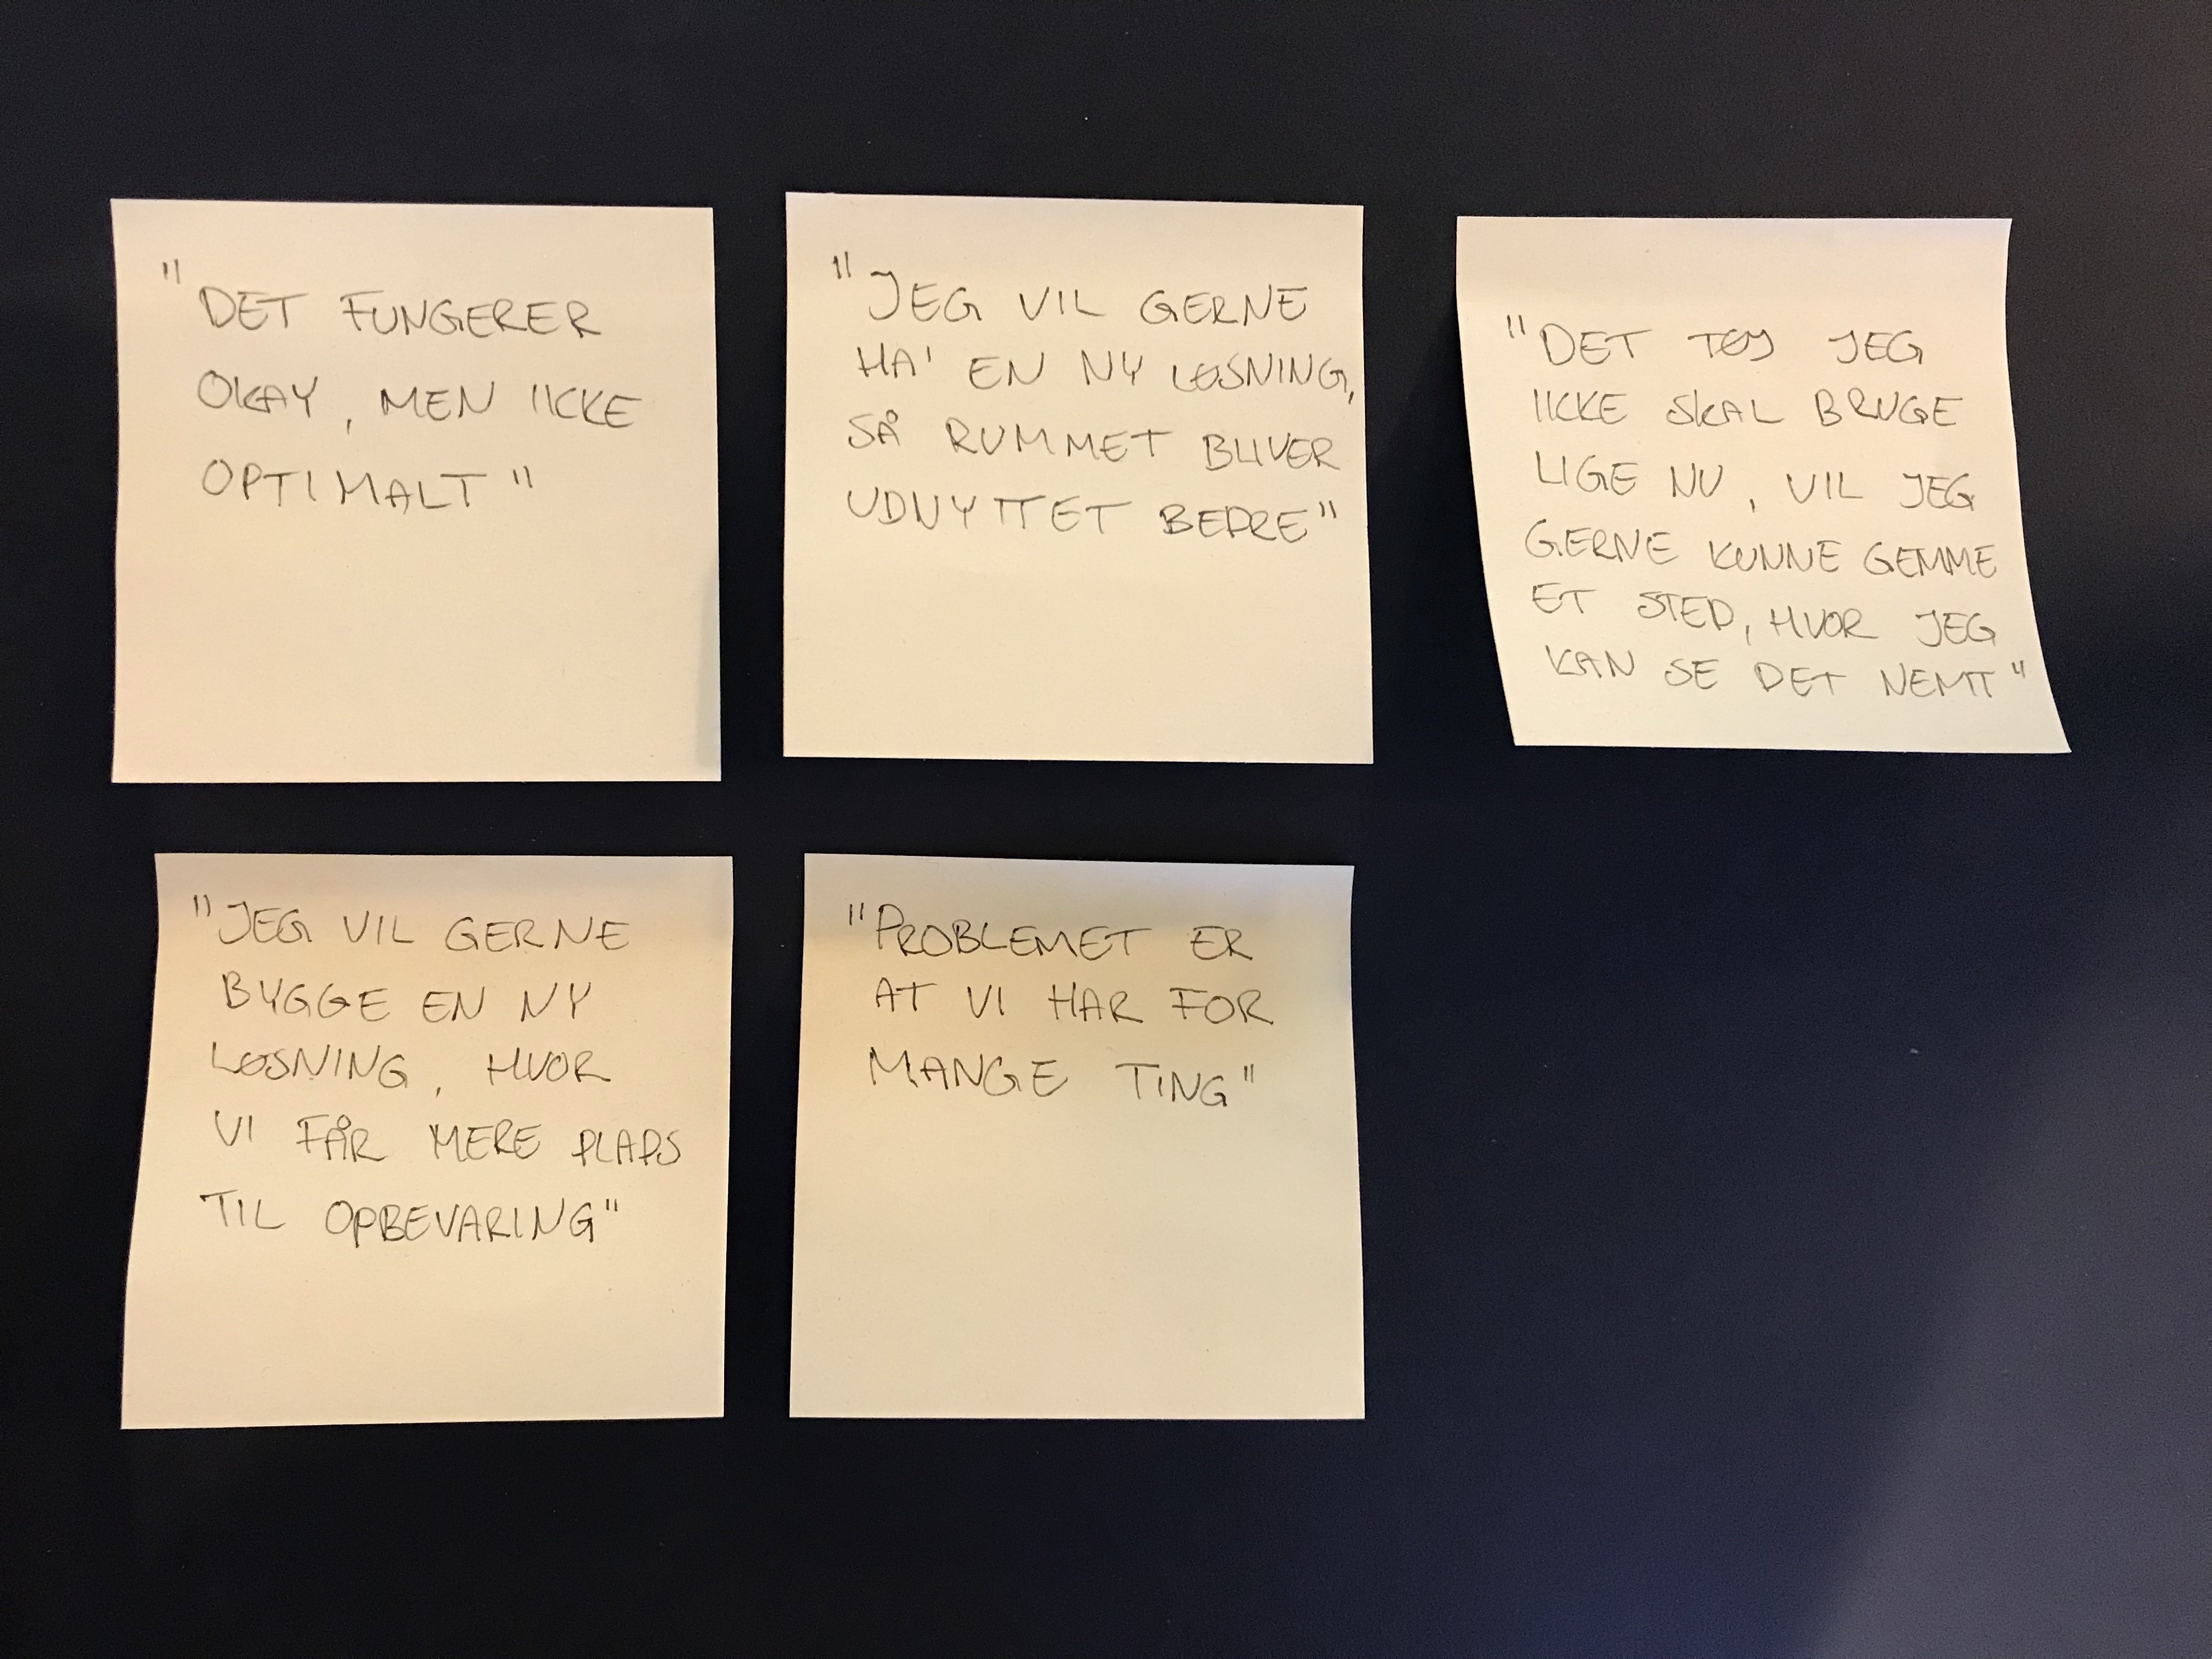 "DET FUNGERER
OKAY, MEN IKKE
OPTIMALT"
"JEG VIL GERNE
HA' EN NY LØSNING,
SÅ RUMMET BLIVER
UDNYTTET BEDRE"
"DET TØJ JEG
IKKE SKAL BRUGE
LIGE NU, VIL JEG
GERNE KUNNE GEMME
ET STED, HVOR JEG
KAN SE DET NEMT"
"JEG VIL GERNE
BYGGE EN NY
LØSNING, HVOR
VI FÅR MERE PLADS
TIL OPBEVARING"
"PROBLEMET ER
AT VI HAR FOR
MANGE TING"